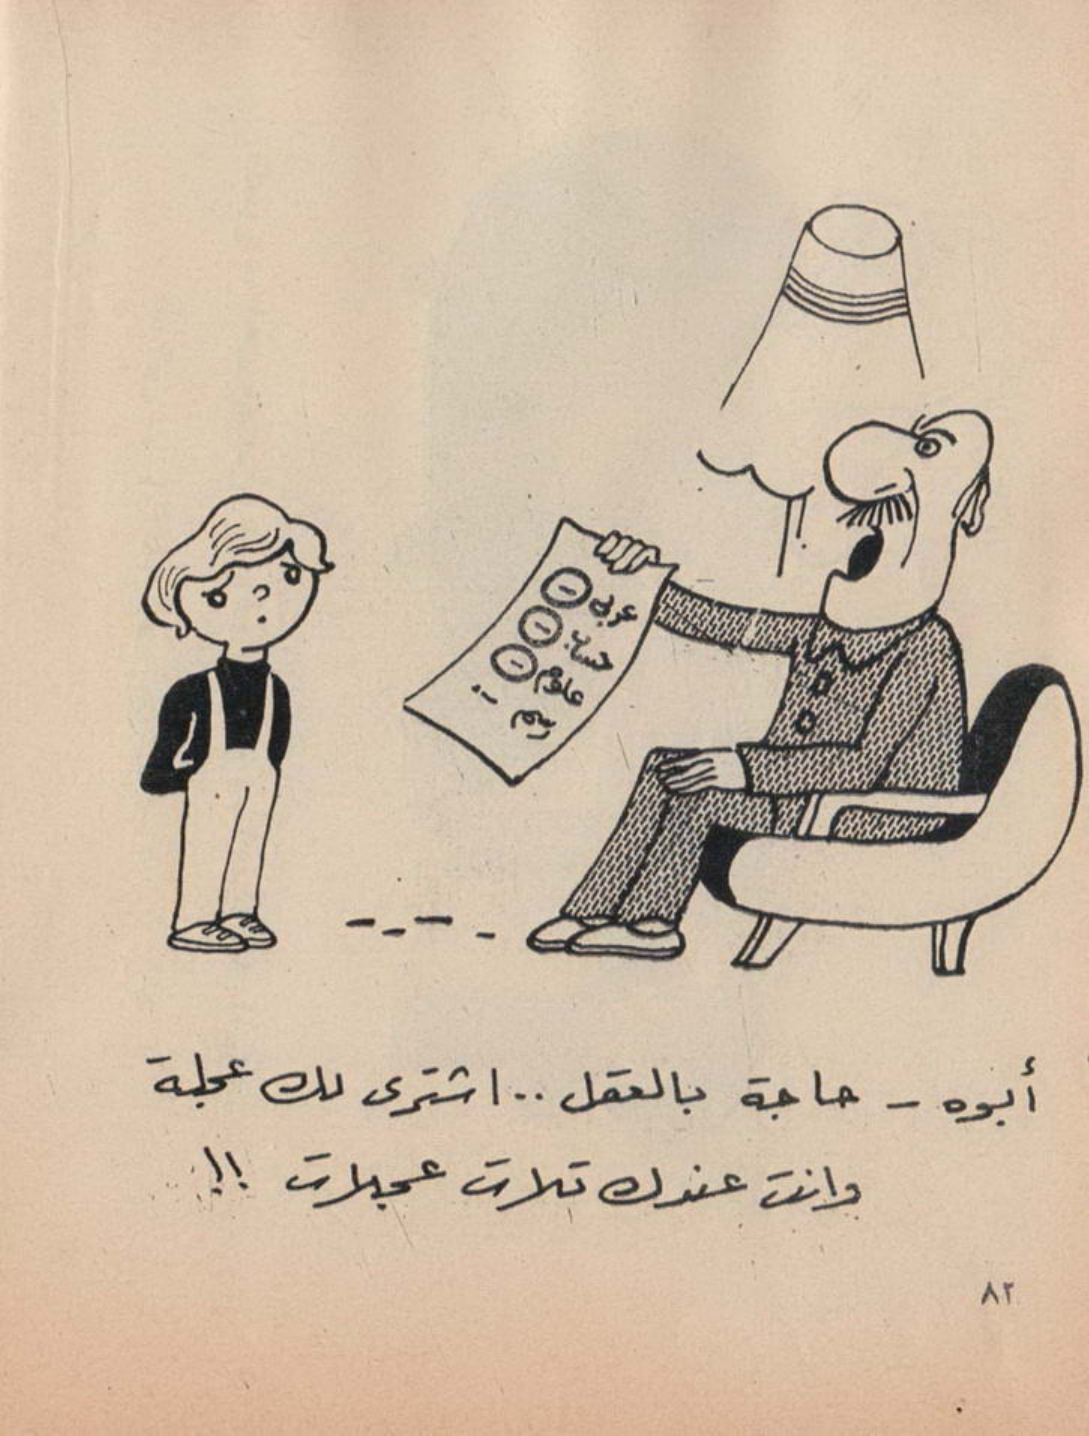 عربى
حساب
علوم
رسم
أبوه - حاجة بالعقل .. اشترى لك عجلة
وانت عندك تلات عجلات !!
٨٢